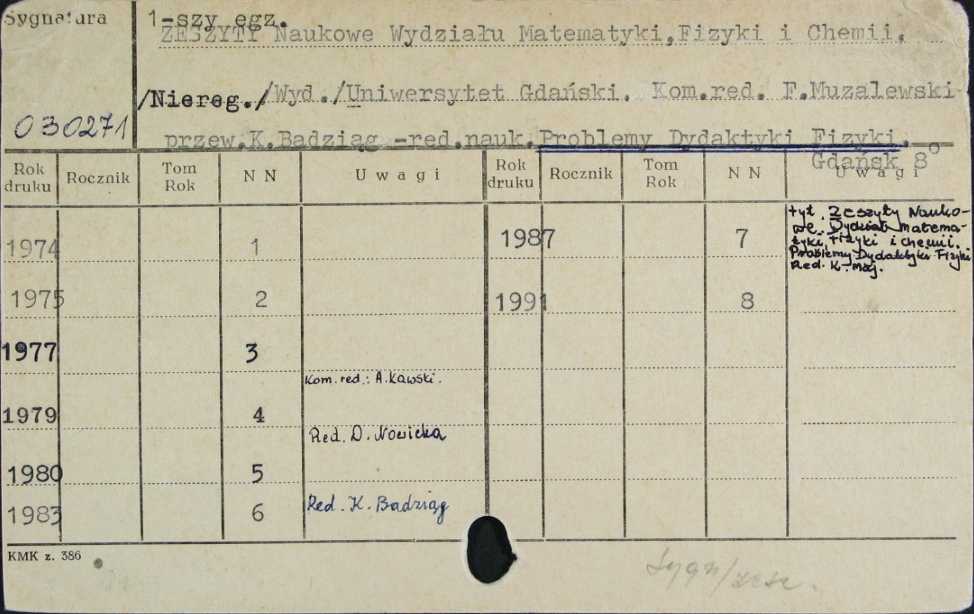 Sygnatura 1-szy egz.
ZESZYTY Naukowe Wydziału Matematyki,Fizyki i Chemii.
/Niereg./ /Wyd./Uniwersytet Gdański. Kom.red. F.Muzalewski
030271
przew.K.Badziąg -red.nauk. Problemy Dydaktyki Fizyki.
Gdańsk 8°
Rok druku Rocznik Tom Rok N N Uwagi Rok druku Rocznik Tom Rok N N Uwagi
1974 1 1987 7 tyt. Zeszyty Nauko-
we. Wydział matema-
tyki, fizyki i chemii.
Problemy Dydaktyki Fizyki
Red. K. Maj.
1975 2 1991 8
1977 3
Kom. red.: A. Kawski.
1979 4
Red. D. Nowicka
1980 5
1983 6 Red. K. Badziąg
KMK z. 386
Sygn/zesz.